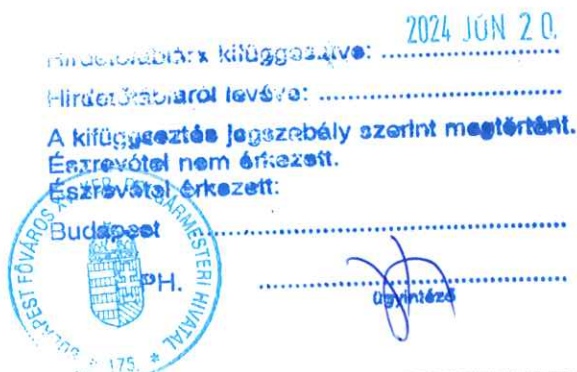 2024 JÚN 20.
Hirdetőtáblára kifüggesztve: ....................
Hirdetőtábláról levéve: ....................
A kifüggesztés jogszabály szerint megtörtént.
Észrevétel nem érkezett.
Észrevétel érkezett:
Budapest ....................
PH. ....................
ügyintéző
BUDAPEST FŐVÁROS KER. POLGÁRMESTERI HIVATAL
* 175. *